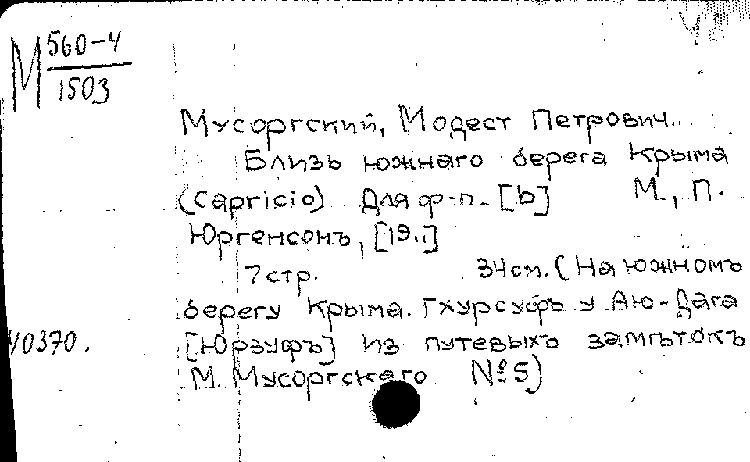 М 560-4
1503
Мусоргский, Модест Петрович.
Близь южнаго берега Крыма
(Capricio) Для ф-п. [b] М., П.
Юргенсонъ, [19..]
7 стр. 34 см. (На южномъ
берегу Крыма. Гхурсуфъ у Аю-Дага
[Юрзуфъ] Из путевыхъ замѣтокъ
М. Мусоргскаго №5)
40370.